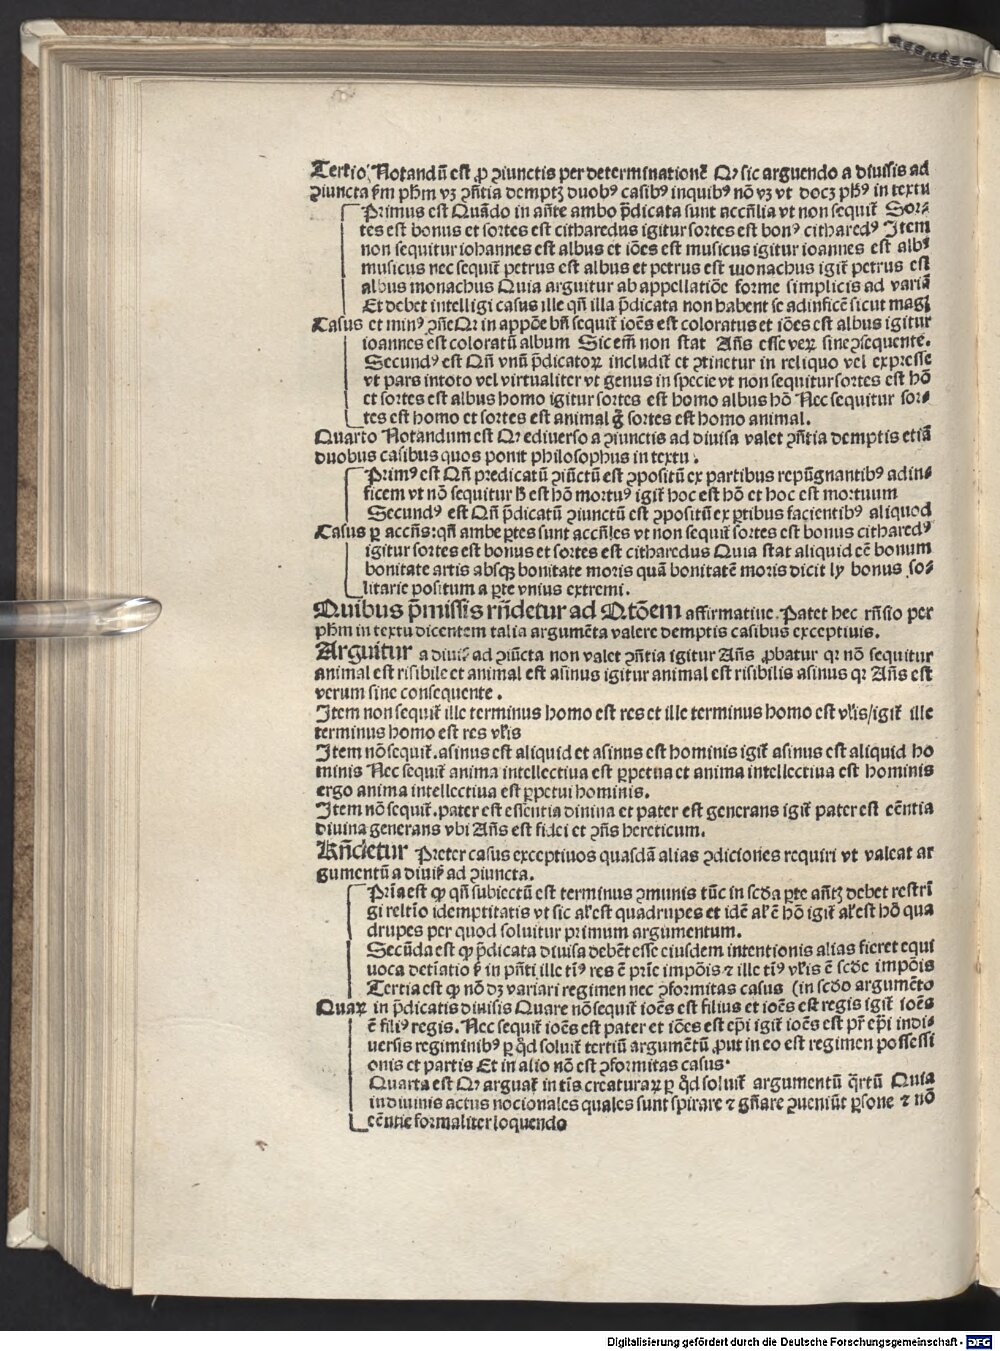 Tertio Notandū est ꝓ ꝯiunctis per determinationē Qꝛ sic arguendo a diuisis ad
ꝯiuncta ẜm pħm vꝫ ꝯñtia demptꝫ duobꝰ casibꝰ inquibꝰ nō vꝫ vt docꝫ pħꝰ in textu
Primus est Quādo in añte ambo p̄dicata sunt accñlia vt non sequit̃ Sor⸗
tes est bonus et sortes est citharedus igitur sortes est bonꝰ citharedꝰ Item
non sequitur iohannes est albus et iōes est musicus igitur ioannes est albꝰ
musicus nec sequit̃ petrus est albus et petrus est monachus igit̃ petrus est
albus monachus Quia arguitur ab appellatiōe forme simplicis ad variā
Et debet intelligi casus ille qñ illa p̄dicata non habent se adinficē sicut magꝭ
Casus et minꝰ ꝯñe Qꝛ in appōe bñ sequit̃ ioēs est coloratus et iōes est albus igitur
ioannes est coloratū album Sic em̄ non stat Añs esse veꝝ sine ꝯsequente.
Secundꝰ est Qñ vnū p̄dicatoꝝ includit̃ et ꝯtinetur in reliquo vel expresse
vt pars intoto vel virtualiter vt genus in specie vt non sequitur sortes est hō
et sortes est albus homo igitur sortes est homo albus hō Nec sequitur sor⸗
tes est homo et sortes est animal g̃ sortes est homo animal.
Quarto Notandum est Qꝛ ediuerso a ꝯiunctis ad diuisa valet ꝯñtia demptis etiā
duobus casibus quos ponit philosophus in textu.
Primꝰ est Qñ predicatū ꝯiūctū est ꝯpositū ex partibus repūgnantibꝰ adin⸗
ficem vt nō sequitur h̄ est hō mortuꝰ igit̃ hoc est hō et hoc est mortuum
Secundꝰ est Qñ p̄dicatū ꝯiunctū est ꝯpositū ex ꝑtibus facientibꝰ aliquod
Casus ꝑ accñs: qñ ambe ꝑtes sunt accñles vt non sequit̃ sortes est bonus citharedꝰ
igitur sortes est bonus et sortes est citharedus Quia stat aliquid eē bonum
bonitate artis absqꝫ bonitate moris quā bonitatē moris dicit ly bonus so⸗
litarie positum a ꝑte vnius extremi.
Quibus p̄missis rñdetur ad Qtōem affirmatiue. Patet hec rñsio per
pħm in textu dicentem talia argumēta valere demptis casibus exceptiuis.
Arguitur a diuiẜ ad ꝯiūcta non valet ꝯñtia igitur Añs ꝓbatur qꝛ nō sequitur
animal est risibile et animal est asinus igitur animal est risibilis asinus qꝛ Añs est
verum sine consequente.
Item non sequit̃ ille terminus homo est res et ille terminus homo est vl̄is/igit̃ ille
terminus homo est res vl̄is
Item nōsequit̃. asinus est aliquid et asinus est hominis igit̃ asinus est aliquid ho
minis Nec sequit̃ anima intellectiua est ꝑpetua et anima intellectiua est hominis
ergo anima intellectiua est ꝑpetui hominis.
Item nō sequit̃. pater est essentia diuina et pater est generans igit̃ pater est eēntia
diuina generans vbi Añs est fidei et ꝯñs hereticum.
Rñdetur Preter casus exceptiuos quasdā alias ꝯdiciones requiri vt valeat ar
gumentū a diuiẜ ad ꝯiuncta.
Pr̄ia est qꝙ qñ subiectū est terminus ꝯmunis tūc in scd̄a ꝑte añtꝫ debet restri
gi reltīo idemptitatis vt sic al̄ est quadrupes et idē al̄ ē hō igit̃ al̄ est hō qua
drupes per quod soluitur primum argumentum.
Secūda est qꝙ p̄dicata diuisa debēt esse eiusdem intentionis alias fieret equi
uoca det̄iatio ẜ in pñti ille t̄iꝰ res ē pr̄ie impōis ⁊ ille t̄iꝰ vl̄is ē scd̄e impōis
Tertia est qꝙ nō dꝫ variari regimen nec ꝯformitas casus (in scd̄o argumēto
Quaꝝ in p̄dicatis diuisis Quare nōsequit̃ ioēs est filius et ioēs est regis igit̃ ioēs
ē filiꝰ regis. Nec sequit̃ ioēs est pater et ioēs est ep̄i igit̃ ioēs est pr̄ ep̄i indi⸗
uersis regiminibꝰ ꝑ qd̄ soluit̃ tertiū argumētū ꝓut in eo est regimen possessi
onis et partis Et in alio nō est ꝯformitas casus.
Quarta est Qꝛ arguat̃ in t̄is creaturaꝝ ꝑ qd̄ soluit̃ argumentū q̄rtū Quia
in diuinis actus nocionales quales sunt spirare ⁊ gñare ꝯueniūt ꝑsone ⁊ nō
eēntie formaliter loquendo
Digitalisierung gefördert durch die Deutsche Forschungsgemeinschaft - DFG